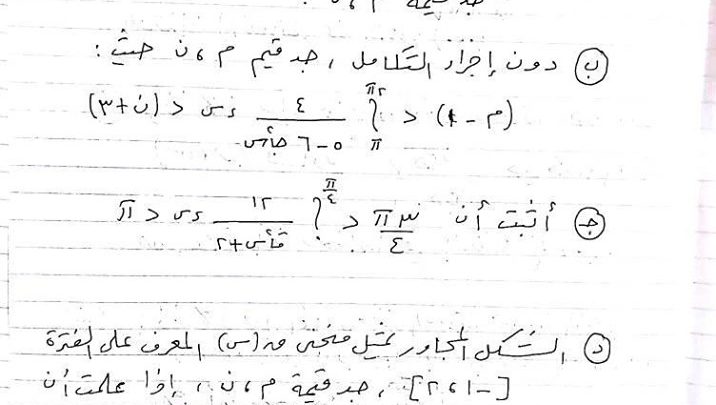 جد قيمة م ، ن
ب) دون إجراء التكامل ، جد قيم م ، ن حيث :
(م - ١) > ∫_π^{٢π} ٤ / (٥ - ٦ جا٢س) ءس > (ن + ٣)
ج) أثبت أن ٣π/٤ > ∫^{π/٤} ١٢ / (قا٢س + ٢) ءس > π
د) الشكل المجاور يمثل منحنى ق(س) المعرف على الفترة
[-١ ، ٢] ، جد قيمة م ، ن ، إذا علمت أن